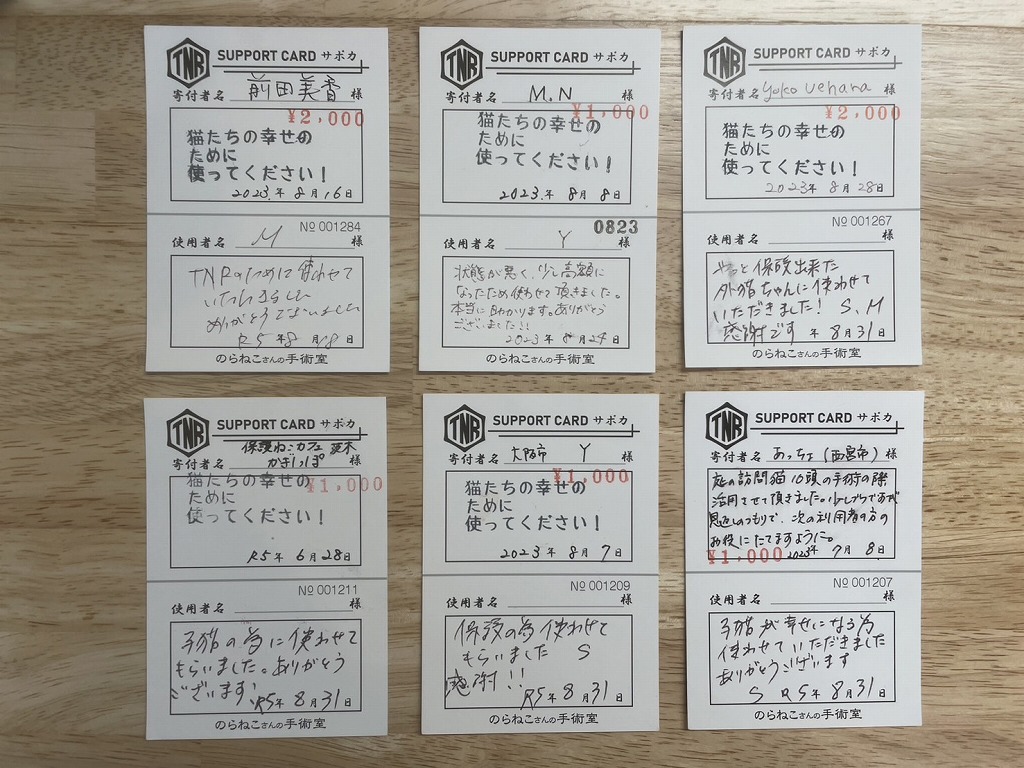 TNR SUPPORT CARD サポカ
寄付者名 前田美香 様
¥2,000
猫たちの幸せの
ために
使ってください！
2023.年 8月16日
№ 001284
使用者名 M 様
TNRのために使わせて
いただきました
ありがとうございました
R5年8月18日
のらねこさんの手術室
TNR SUPPORT CARD サポカ
寄付者名 M.N 様
¥1,000
猫たちの幸せの
ために
使ってください！
2023.年 8月 8日
0823
使用者名 Y 様
状態が悪く、少し高額に
なったため使わせて頂きました。
本当に助かります。ありがとう
ございました!!
2023年 8月24日
のらねこさんの手術室
TNR SUPPORT CARD サポカ
寄付者名 yoko uehara 様
¥2,000
猫たちの幸せの
ために
使ってください！
2023年 8月 28日
№ 001267
使用者名 様
やっと保護出来た
外猫ちゃんに使わせて
いただきました！ S、M
感謝です 年 8月31日
のらねこさんの手術室
TNR SUPPORT CARD サポカ
保護ねこカフェ
寄付者名 かぎしっぽ 様
¥1,000
猫たちの幸せの
ために
使ってください！
R5年 6月28日
№ 001211
使用者名 様
子猫の為に使わせて
もらいました。ありがとう
ございます。R5年8月31日
のらねこさんの手術室
TNR SUPPORT CARD サポカ
寄付者名 大阪市 Y 様
¥1,000
猫たちの幸せの
ために
使ってください！
2023年 8月 7日
№ 001209
使用者名 様
保護の為使わせて
もらいました S
感謝!! R5年8月31日
のらねこさんの手術室
TNR SUPPORT CARD サポカ
寄付者名 あっちょ(西宮市) 様
庭の訪問猫10頭の手術の際
活用させて頂きました。少しづつですが
恩返しのつもりで、次の利用者の方の
お役にたてますように。
¥1,000 2023年 7月 8日
№ 001207
使用者名 様
子猫が幸せになる為
使わせていただきました
ありがとうございます
S R5年 8月31日
のらねこさんの手術室